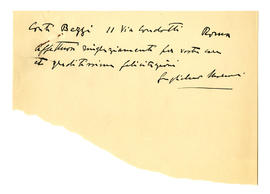 Conti Beggi 11 Via Condotti Roma
Affettuosi ringraziamenti per vostre care
et graditissime felicitazioni
Guglielmo Marconi